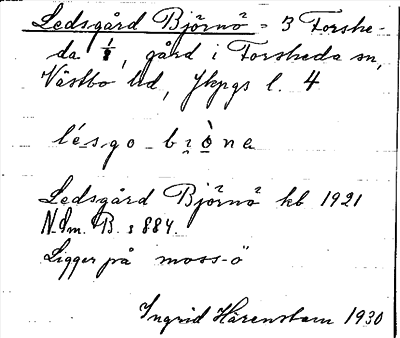 Ledsgård Björnö = 3 Forshe-
da 1/8, gård i Forsheda sn,
Västbo hd, Jkpgs l. 4
lé-s-go - bıòne
Ledsgård Björnö kb 1921
N. Sm. B. s 884.
Ligger på moss-ö
Ingrid Härenstam 1930